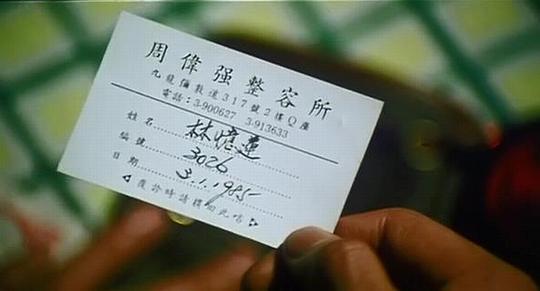 周偉强整容所
九龍彌敦道317號2樓Q座
電話:3-900627 3-913633
姓名 林憶蓮
編號 3026
日期 3.1.1985
復診時請携回此咭